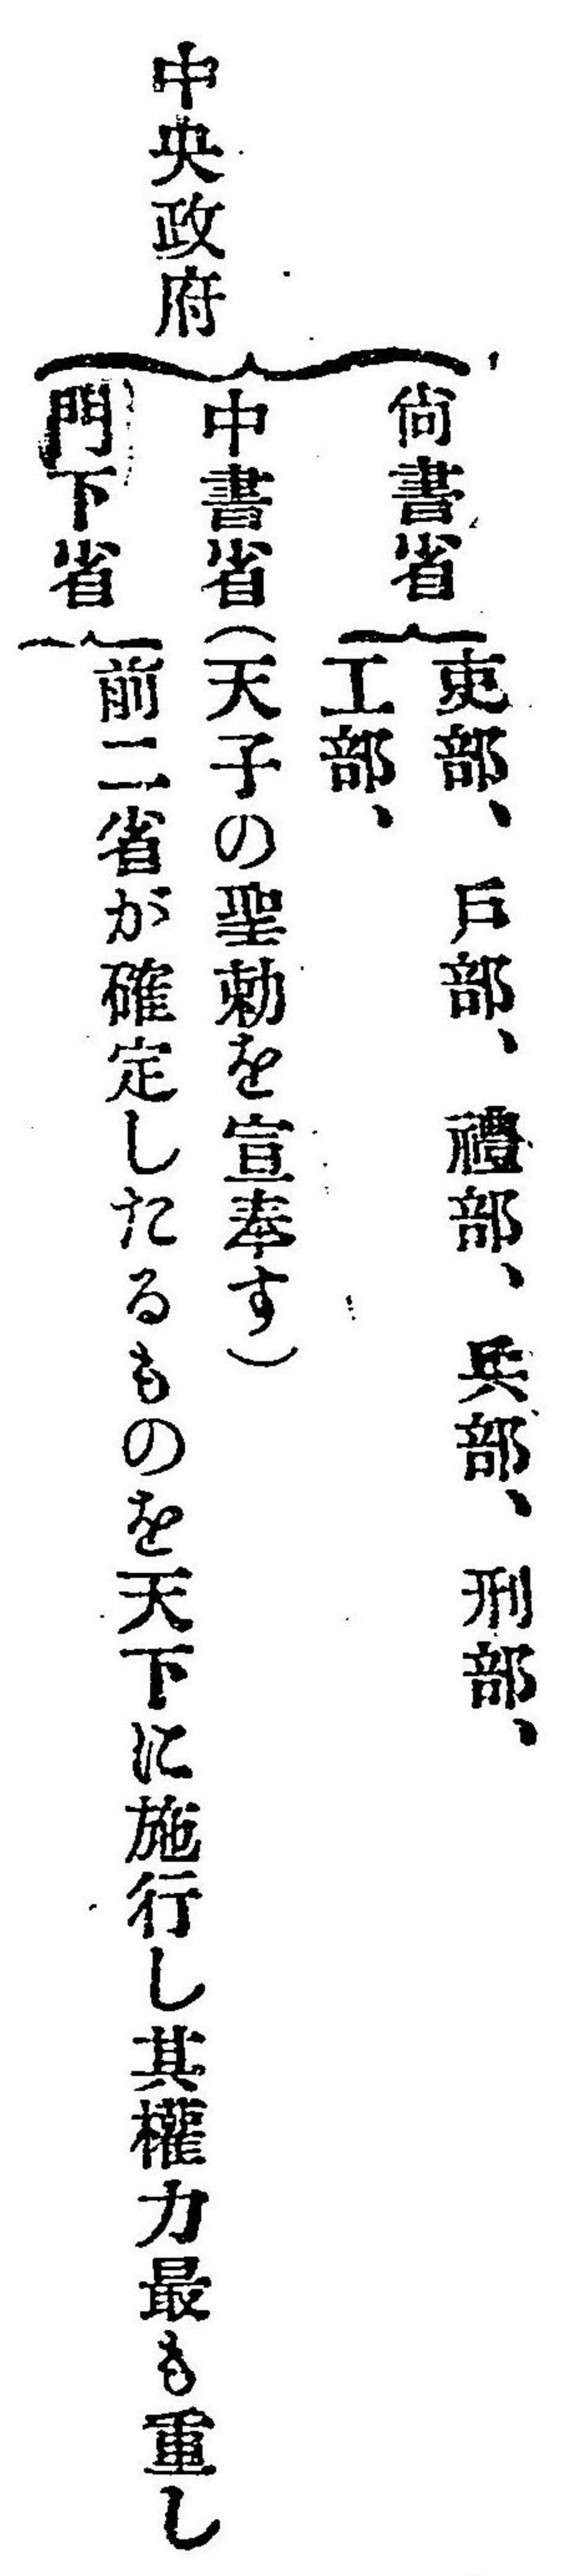 中央政府
尙書省
吏部、戶部、禮部、兵部、刑部、
工部、
中書省(天子の聖勅を宣奉す)
門下省
前二省が確定したるものを天下に施行し其權力最も重し